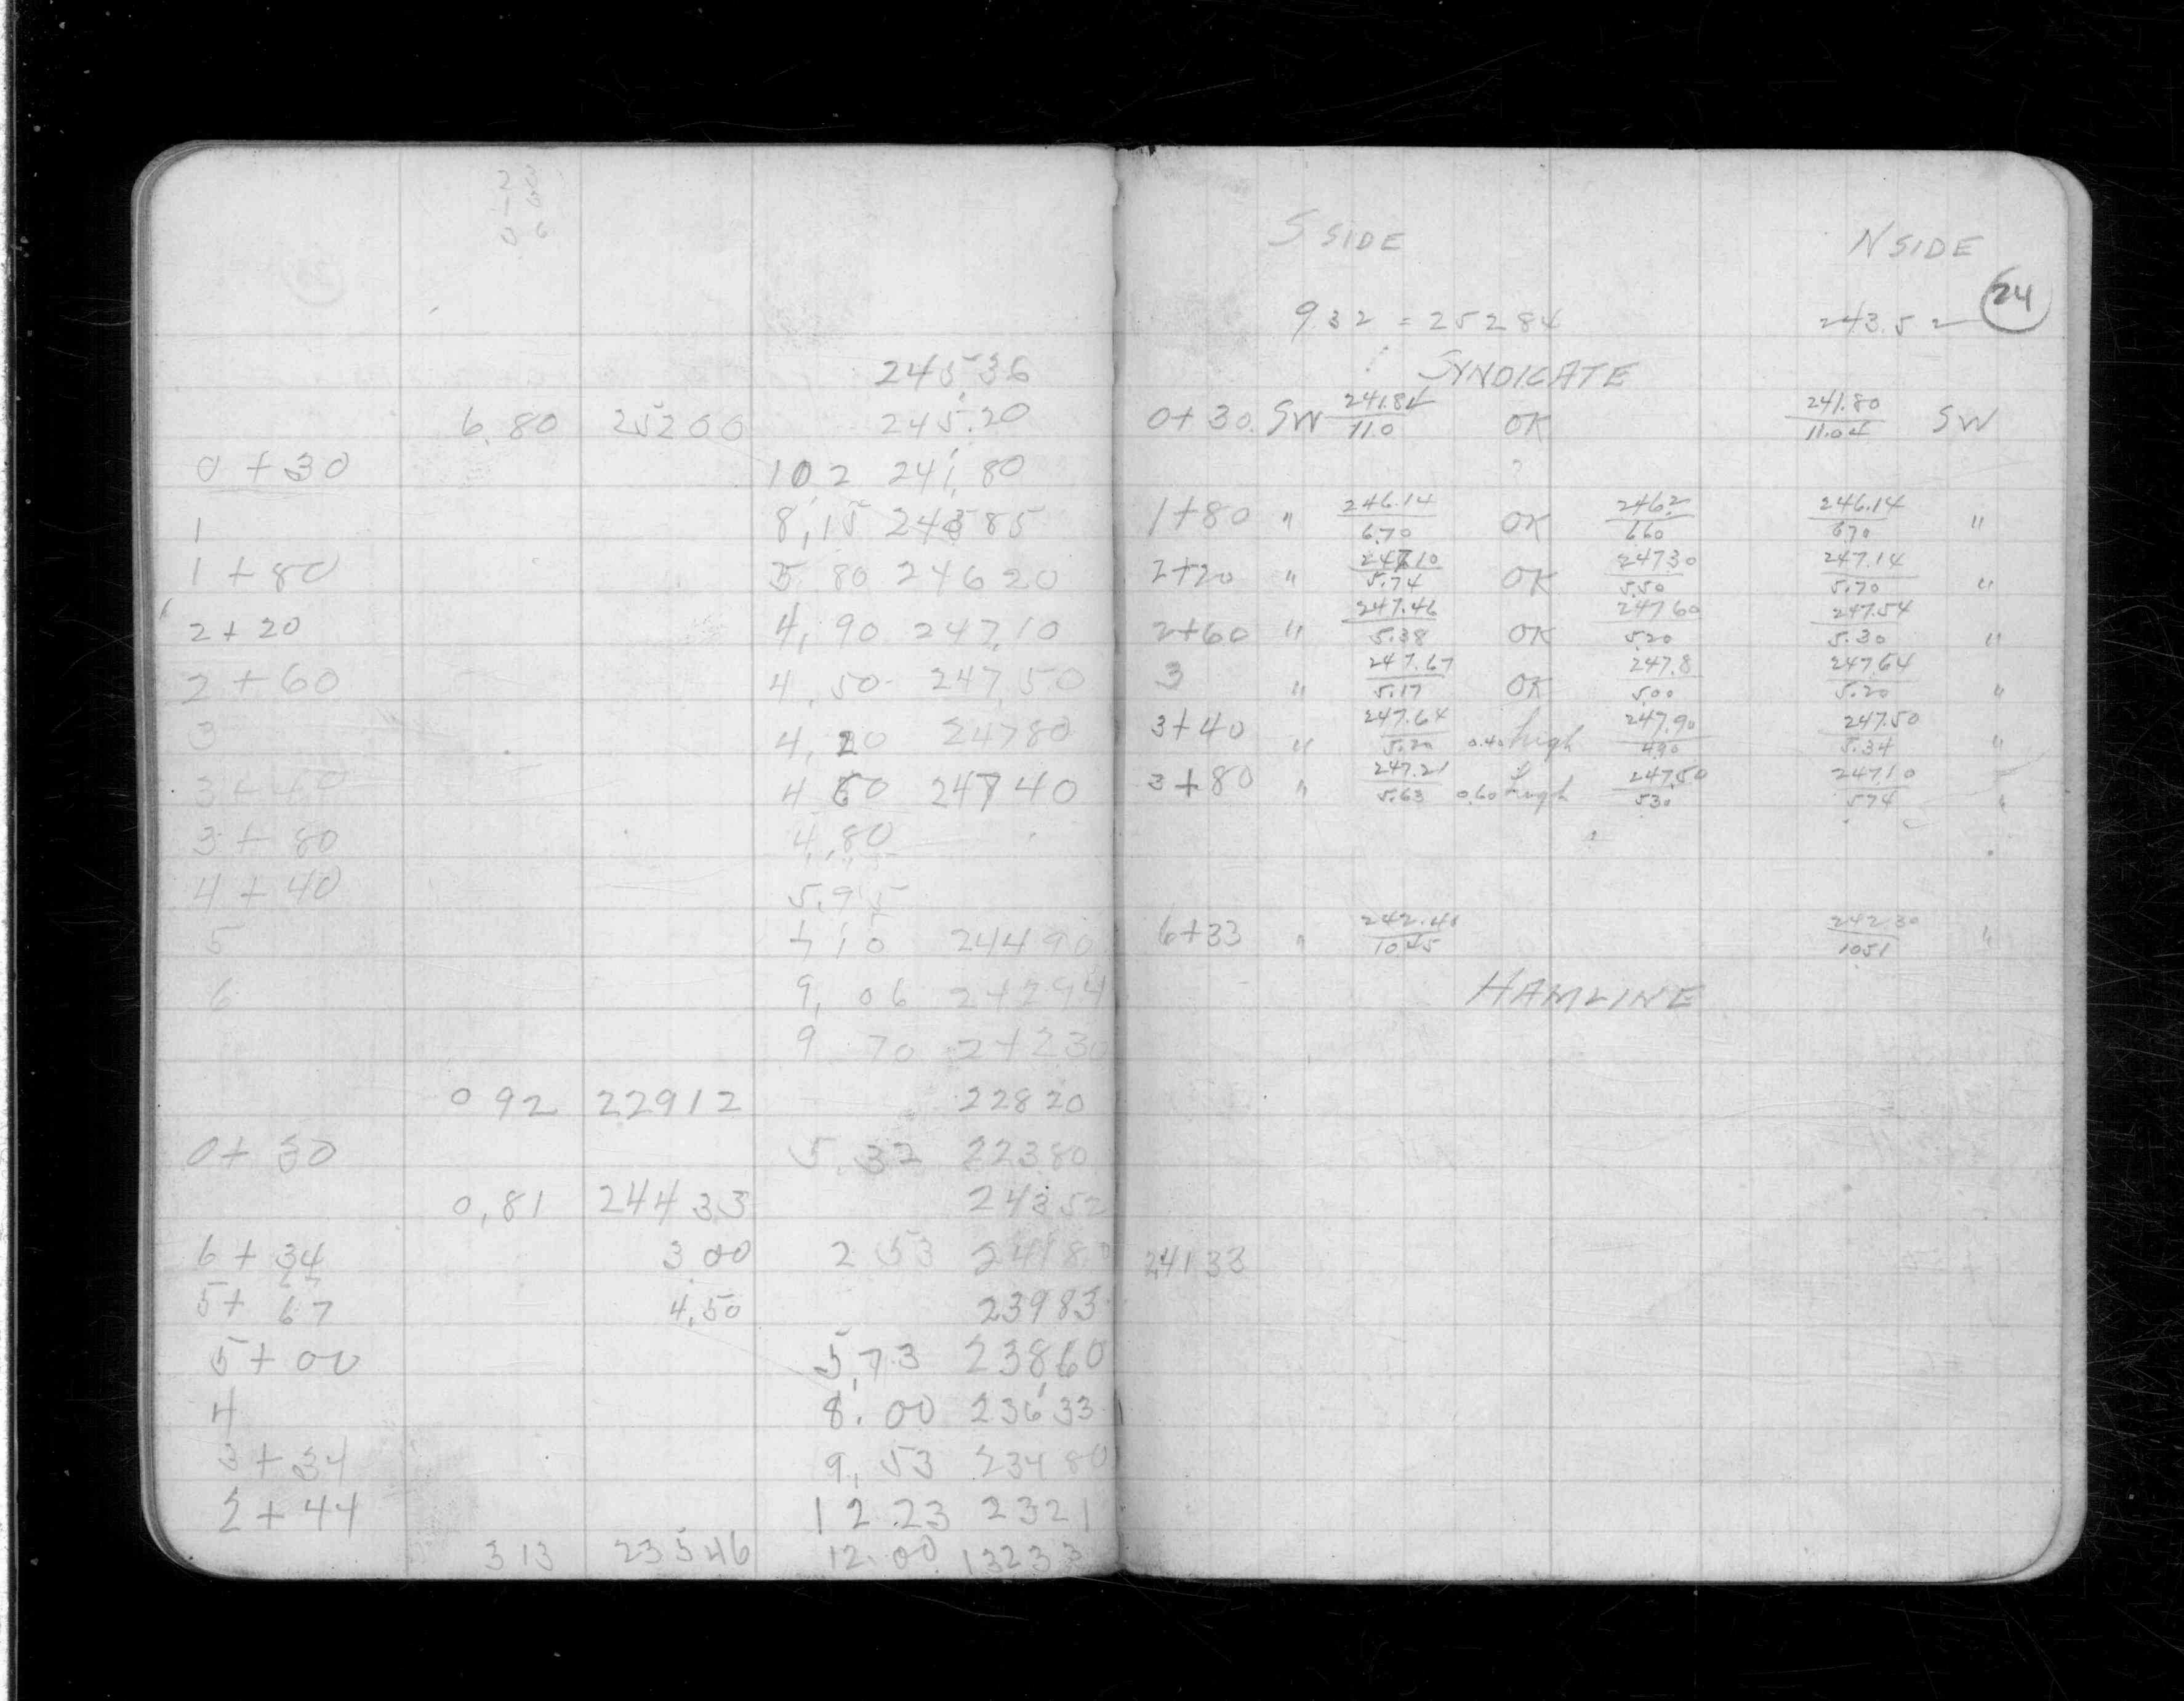 245.36
6.80 25200 245.20
0+30 10.2 241.80
1 8.15 24385
1+80 5.80 24620
2+20 4.90 247.10
2+60 4.50 247.50
3 4.20 24780
3+40 4 60 247 40
3+80 4.80
4+40 5.95
5 7 10 24490
6 9.06 24294
9 70 24230
0 92 22912 22820
0+30 5.32 22380
0.81 24433 24352
6+34 3 00 2 53 24180
5+67 4.50 23983
5+00 5.73 23860
4 8.00 23633
3+34 9.53 23480
2+44 12.23 2321
3 13 23546 12.00 13233
S SIDE N SIDE
24
9.32 = 25284 243.52
SYNDICATE
0+30 SW 241.84/11.0 OK 241.80/11.04 SW
1+80 " 246.14/6.70 OK 246.2/660 246.14/670 "
2+20 " 247.10/5.74 OK 24730/5.50 247.14/5.70 "
2+60 " 247.46/5.38 OK 24760/5.20 247.54/5.30 "
3 " 247.67/5.17 OK 247.8/5.00 24764/5.20 "
3+40 " 247.64/5.20 0.40 high 247.90/490 247.50/5.34 "
3+80 " 247.21/5.63 0.60 high 247.50/530 24710/574 "
6+33 " 242.40/1045 24230/1051 "
HAMLINE
24133